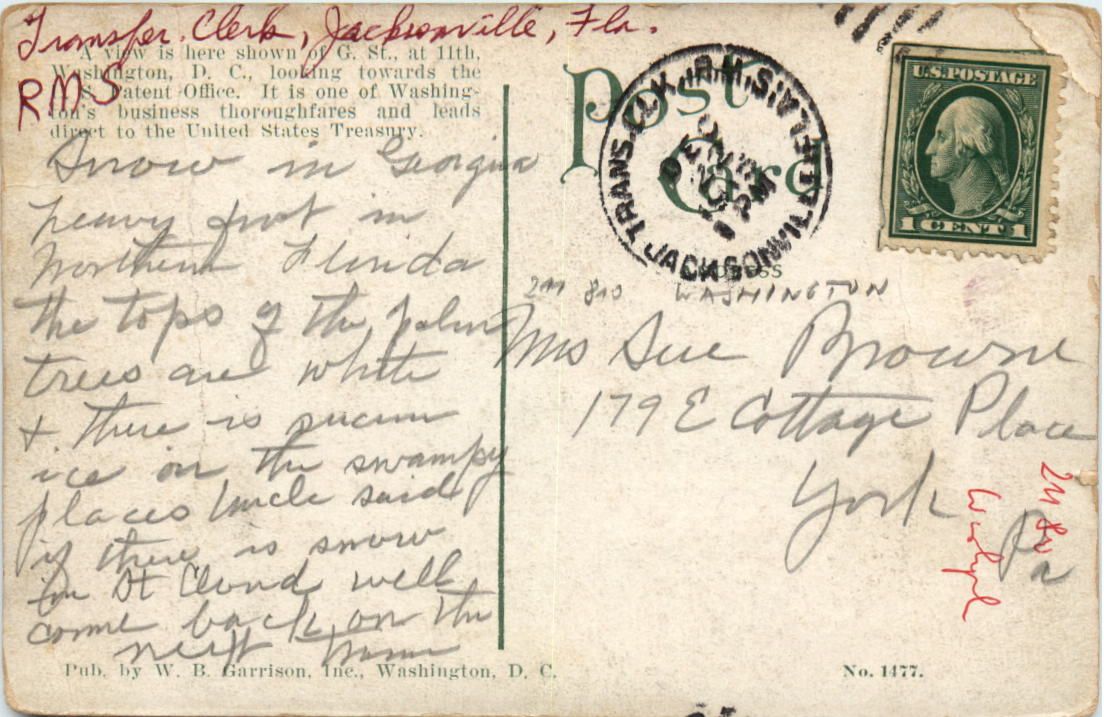 Transfer. Clerk, Jacksonville, Fla.
RMS
A view is here shown of G. St., at 11th,
Washington, D. C., looking towards the
U. S. Patent Office. It is one of Washing-
ton's business thoroughfares and leads
direct to the United States Treasury.
Snow in Georgia
heavy frost in
Northern Florida
the tops of the palm
trees are white
& there is
ice on the swampy
places Uncle said
if there is snow
in St Cloud well
come back on the
next
Pub. by W. B. Garrison, Inc., Washington, D. C.
Post
Card
U.S. POSTAGE
1 CENT 1
TRANS. CLK.
JACKSONVILLE, FLA.
DEC
WASHINGTON
Mrs Sue Browne
179 E Cottage Place
York
Pa
No. 1477.